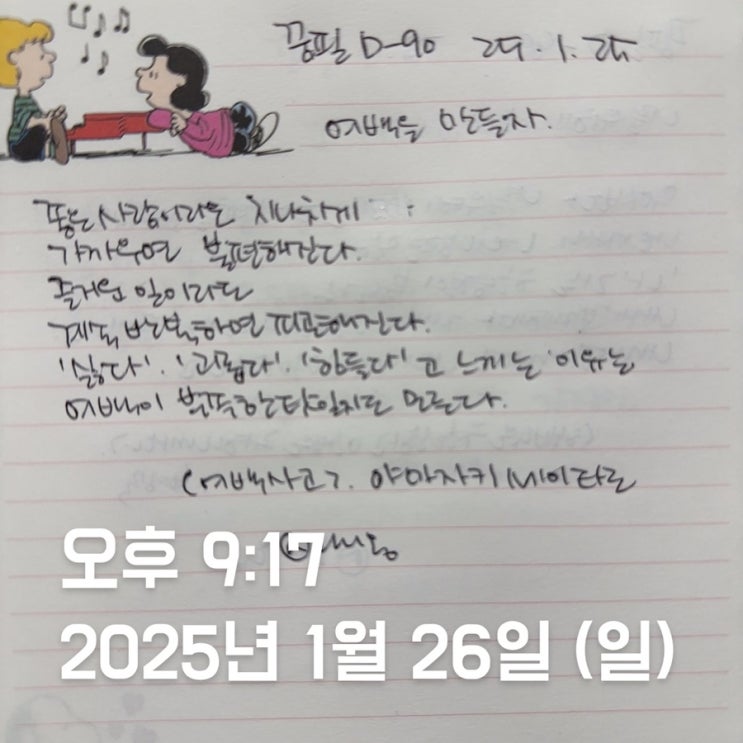 꿈필 D-90 25.1.25
여백을 만들자.
좋은 사람이라도 지나치게
가까우면 불편해진다.
즐거운 일이라도
계속 반복하면 피곤해진다.
'싫다'. '괴롭다'. '힘들다'고 느끼는 이유는
여백이 부족한 탓일지도 모른다.
(여백사고). 야마자키 세이타로
오후 9:17
2025년 1월 26일 (일)